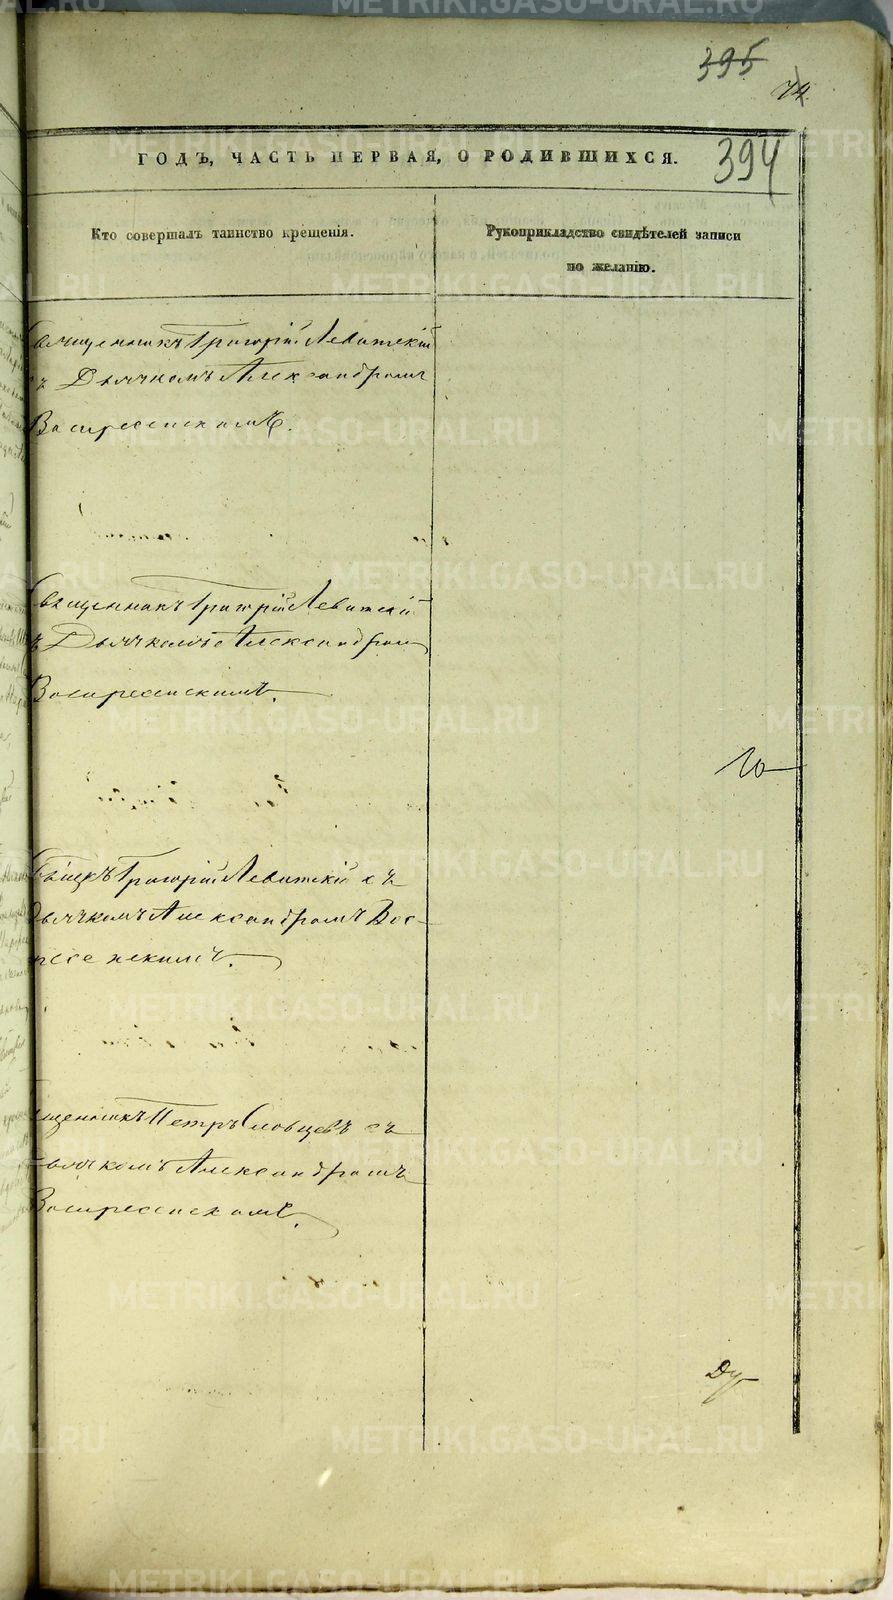 395
74
ГОДЪ, ЧАСТЬ ПЕРВАЯ, О РОДИВШИХСЯ.
394
Кто совершалъ таинство крещенія.
Рукоприкладство свидѣтелей записи
по желанію.
Священникъ Григорій Левитскій
съ Дьячкомъ Александромъ
Воскресенскимъ.
Священникъ Григорій Левитскій
съ Дьячкомъ Александромъ
Воскресенскимъ.
Свящ̃къ Григорій Левитскій съ
Дьячкомъ Александромъ Вос-
кресенскимъ.
Священникъ Петръ Словцевъ съ
Дьячкомъ Александромъ
Воскресенскимъ.
METRIKI.GASO-URAL.RU